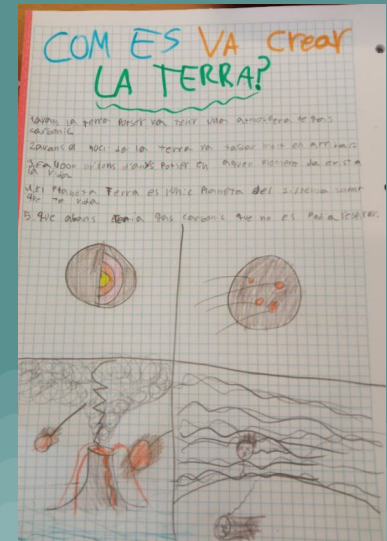 COM ES VA Crear
LA TERRA?
1 avans la terra Potser va tenir una atmosfera de gas
carbonic
2 avans el noci de la terra va
3 Fa 4000 milions d'anys Potser en aquell
la vida
4 el Planeta Terra es l'unic Planeta del sistema solar
que te vida
5 que abans tenia gas carbonic que no es podia respirar.